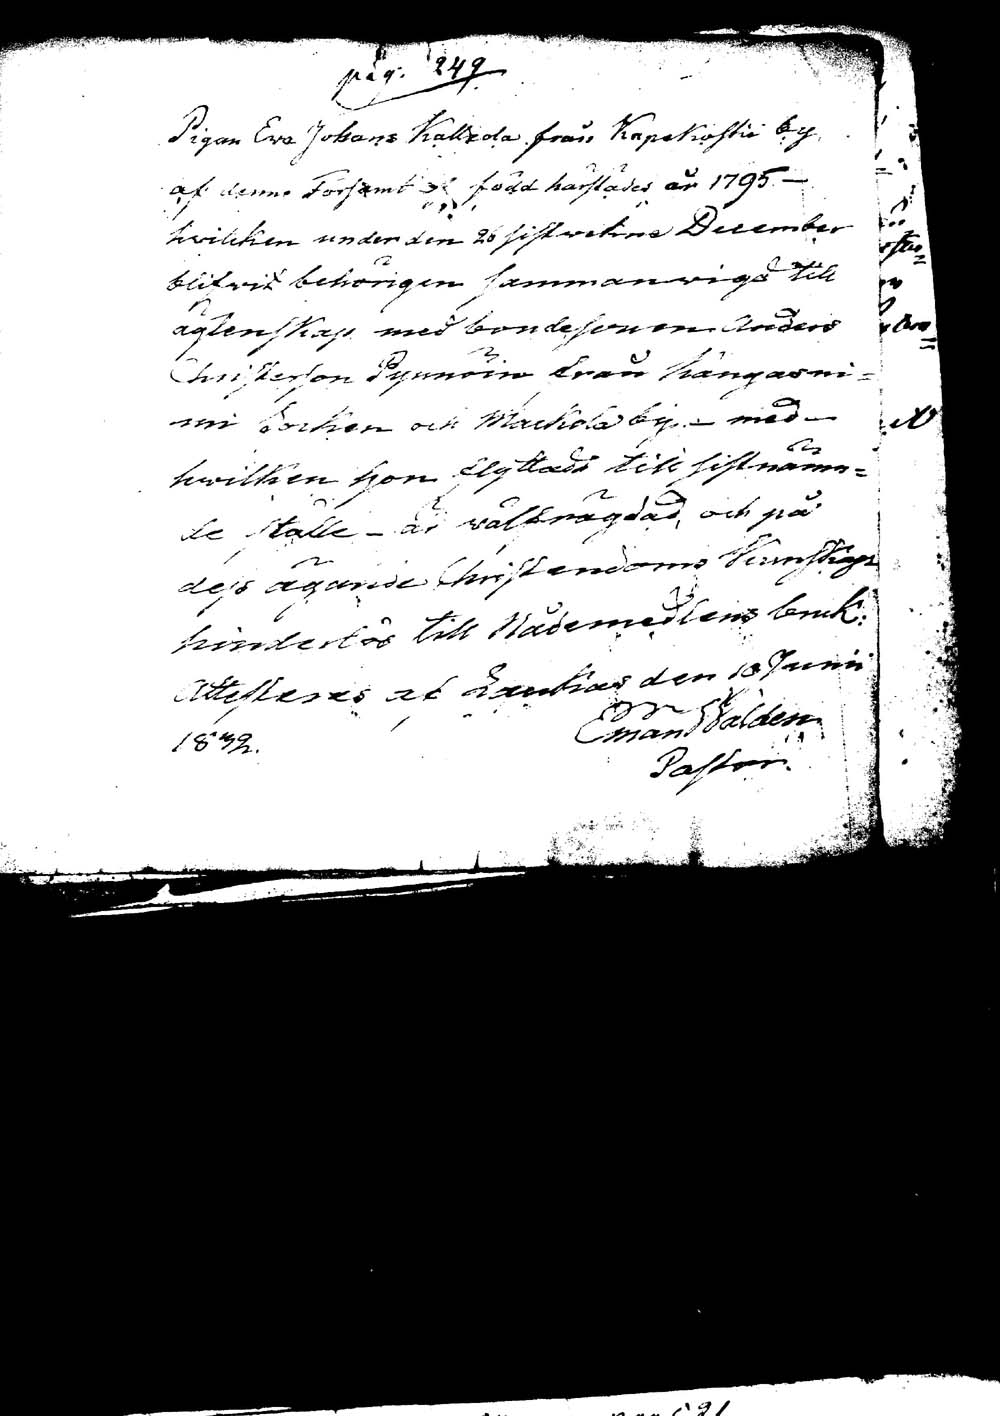 pag. 249
Pigan Eva Johans Kallzda från Kapakoski by
af denna Församl född härstädes år 1795 —
hwilcken under den 26 sistwekne December
blifwit behörigen sammanwigd till
ägtenskap med bondesonen Anders
Christerson Pynnöin från Kangasni=
mi Socken och Mackola by – med
hwilken hon flyttade till sistnämn=
de ställe – är wälfrägdad, och på
dess ägande Christendoms Kunskap
hinderlös till Nådemedlens bruk.
Attesteras af Laukas den 18 Junii
1832.
Eman Walden
Pastor.